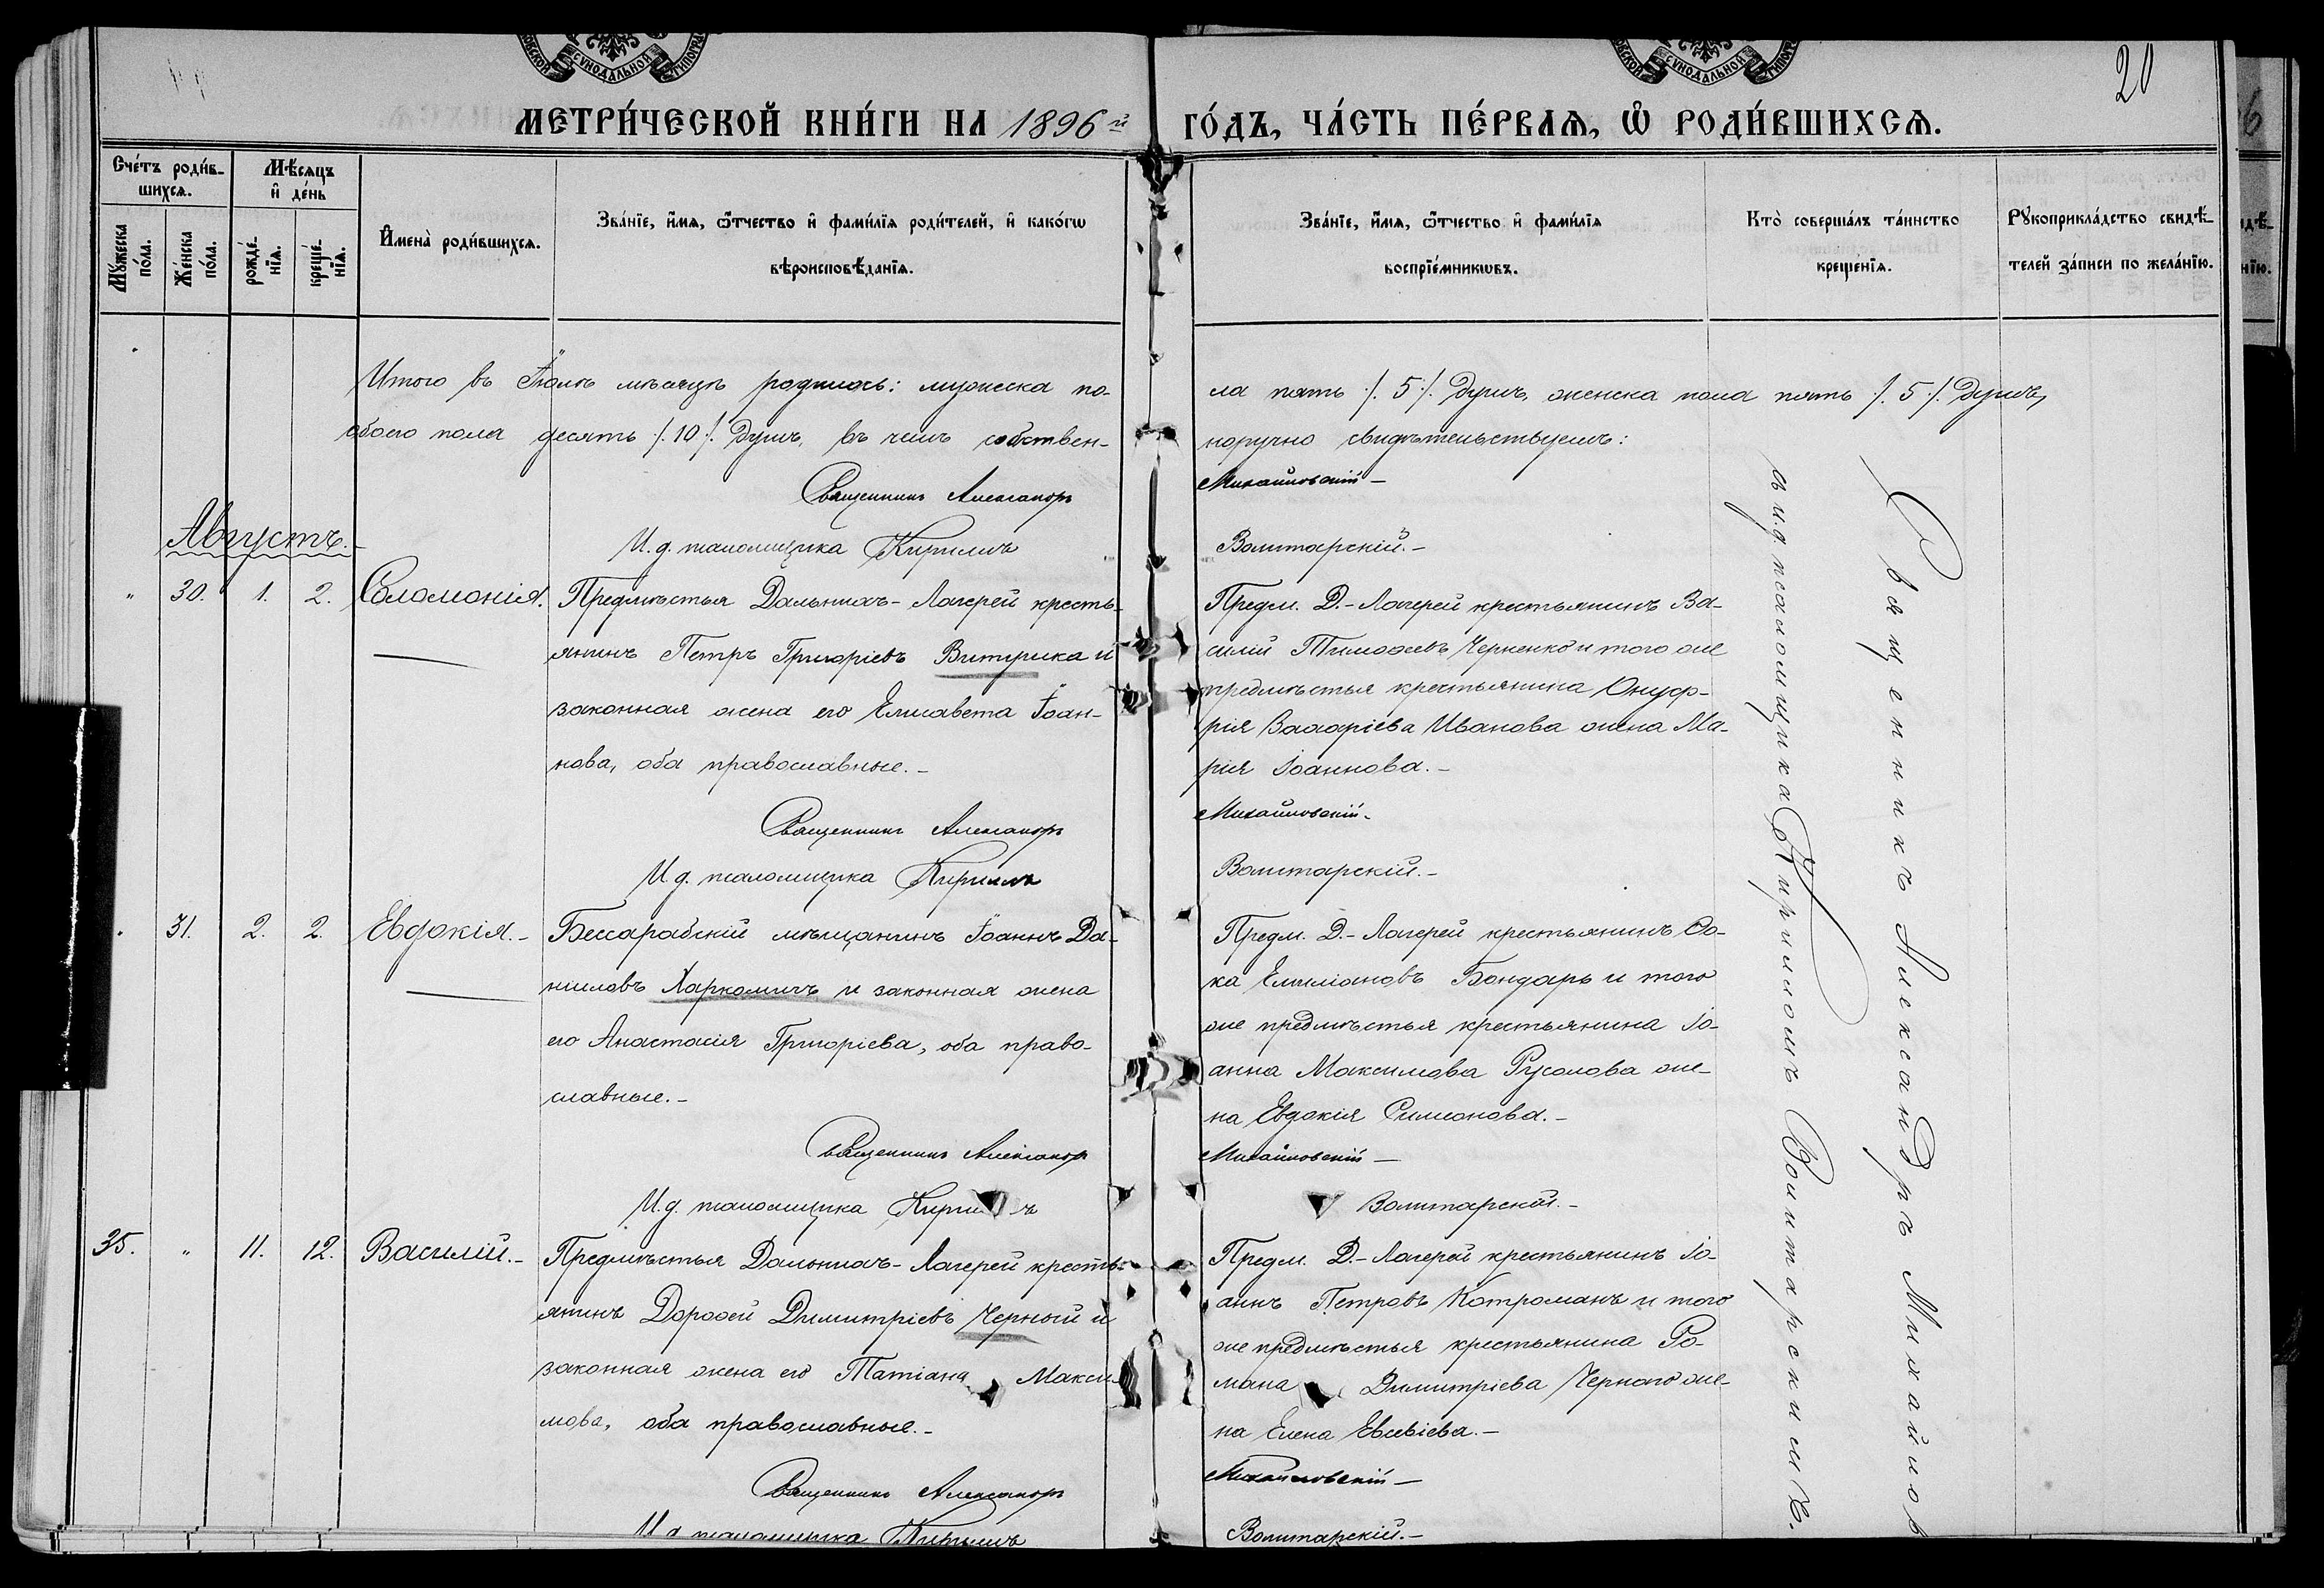 СѴНОДАЛЬНОЙ
СѴНОДАЛЬНОЙ
20
МЕТРИ́ЧЕСКОЙ КНИ́ГИ НА 1896й ГО́ДЪ, ЧА́СТЬ ПЕ́РВАѦ, Ѡ РОДИ́ВШИХСѦ.
Сче́тъ роди́в-
шихсѧ.
Мꙋ́жеска по́ла.
Же́нска по́ла.
Мѣ́сѧцъ
и҆ де́нь
рожде́-
нїѧ.
креще́-
нїѧ.
И҆мена̀ роди́вшихсѧ.
Зва́нїе, и҆́мѧ, ѻ҆́тчество и҆ фами́лїѧ роди́телей, и҆ како́гѡ
вѣроисповѣ́данїѧ.
Зва́нїе, и҆́мѧ, ѻ҆́тчество и҆ фами́лїѧ
воспрїе́мникѡвъ.
Кто̀ соверша́лъ та́инство
креще́нїѧ.
Рꙋкоприкла́дство свидѣ́-
телей за́писи по жела́нїю.
Итого въ Іюлѣ мѣсяцѣ родилось: мужеска по-
ла пять /. 5 /. душъ, женска пола пять /. 5 /. душъ,
обоего пола десять /. 10 /. душъ, въ чемъ собствен-
норучно свидѣтельствуемъ:
Священникъ Александръ Михайловскій -
И. д. псаломщика Кириллъ Волитарскій. -
Августъ. -
" 30. 1. 2. Соломонія.
Предмѣстья Дальнихъ - Лагерей кресть-
янинъ Петръ Григоріевъ Витушка и
законная жена его Елисавета Іоан-
нова, оба православные. -
Предм. Д. - Лагерей крестьянинъ Ва-
силій Тимоѳеевъ Черненко и того же
предмѣстья крестьянина Онуф-
рія Иванова жена Ма-
рія Іоаннова. -
Священникъ Александръ Михайловскій -
И. д. псаломщика Кириллъ Волитарскій. -
" 31. 2. 2. Евдокія. -
Бессарабскій мѣщанинъ Іоаннъ Да-
ніиловъ и законная жена
его Анастасія Григоріева, оба право-
славные. -
Предм. Д. - Лагерей крестьянинъ Ѳо-
ка Емиліановъ Бондарь и того
же предмѣстья крестьянина Іо-
анна Максимова Русолова же-
на Евдокія Симеонова. -
Священникъ Александръ Михайловскій -
И. д. псаломщика Кириллъ Волитарскій. -
35. " 11. 12. Василій. -
Предмѣстья Дальнихъ - Лагерей кресть-
янинъ Дороѳей Димитріевъ Черный и
законная жена его Татіана Макси-
мова, оба православные. -
Предм. Д. - Лагерей крестьянинъ Іо-
аннъ Петровъ Котроманъ и того
же предмѣстья крестьянина Ро-
мана Димитріева Чернаго же-
на Елена Евсевіева. -
Священникъ Александръ Михайловскій -
И. д. псаломщика Кириллъ Волитарскій. -
Священникъ Александръ Михайлов
съ и. д. псаломщика Кирилломъ Волитарскимъ.